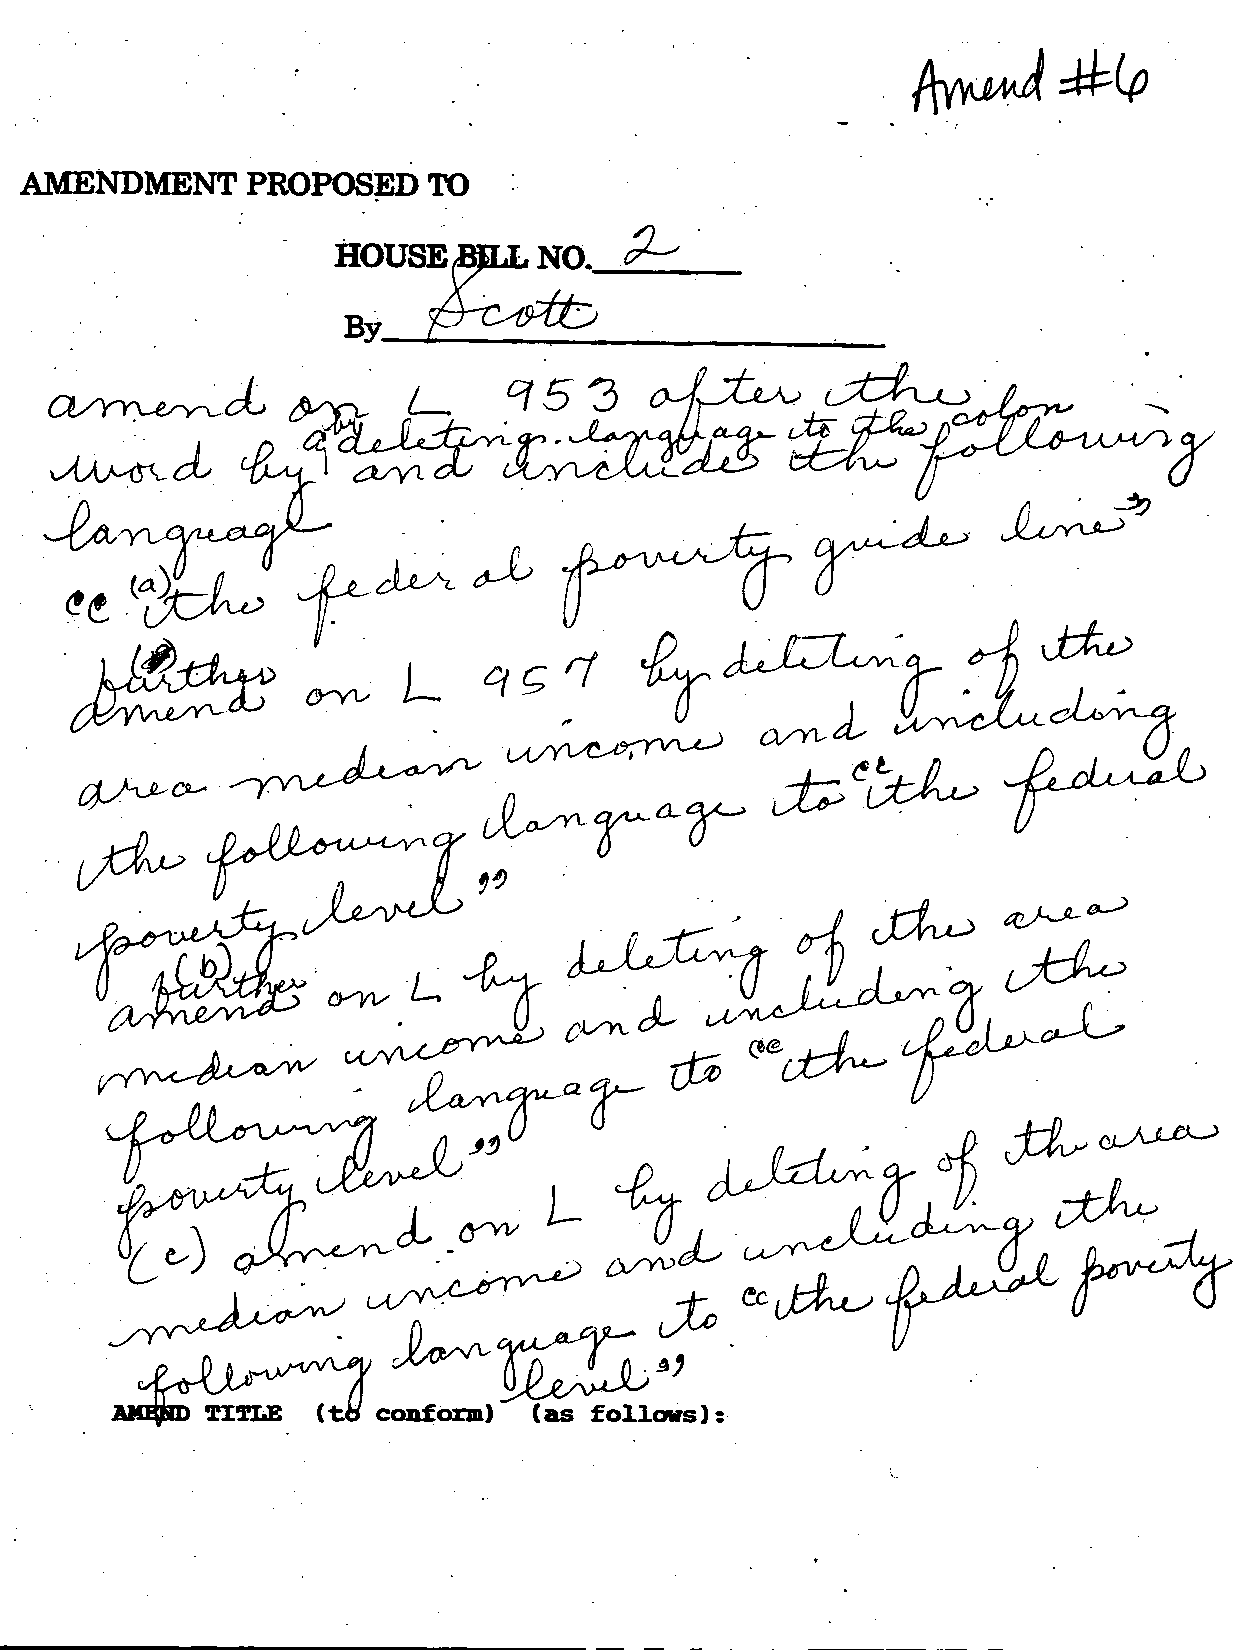 Amend #6
AMENDMENT PROPOSED TO
HOUSE BILL NO. 2
By Scott
amend on L 953 after the
by deleting language to the colon
word by and include the following
language
"(a) the federal poverty guide line"
further
amend on L 957 by deleting of the
area median income and including
the following language to "the federal
poverty level"
(b) further
amend on L by deleting of the area
median income and including the
following language to "the federal
poverty level"
(c) amend on L by deleting of the area
median income and including the
following language to "the federal poverty
level"
AMEND TITLE (to conform) (as follows):